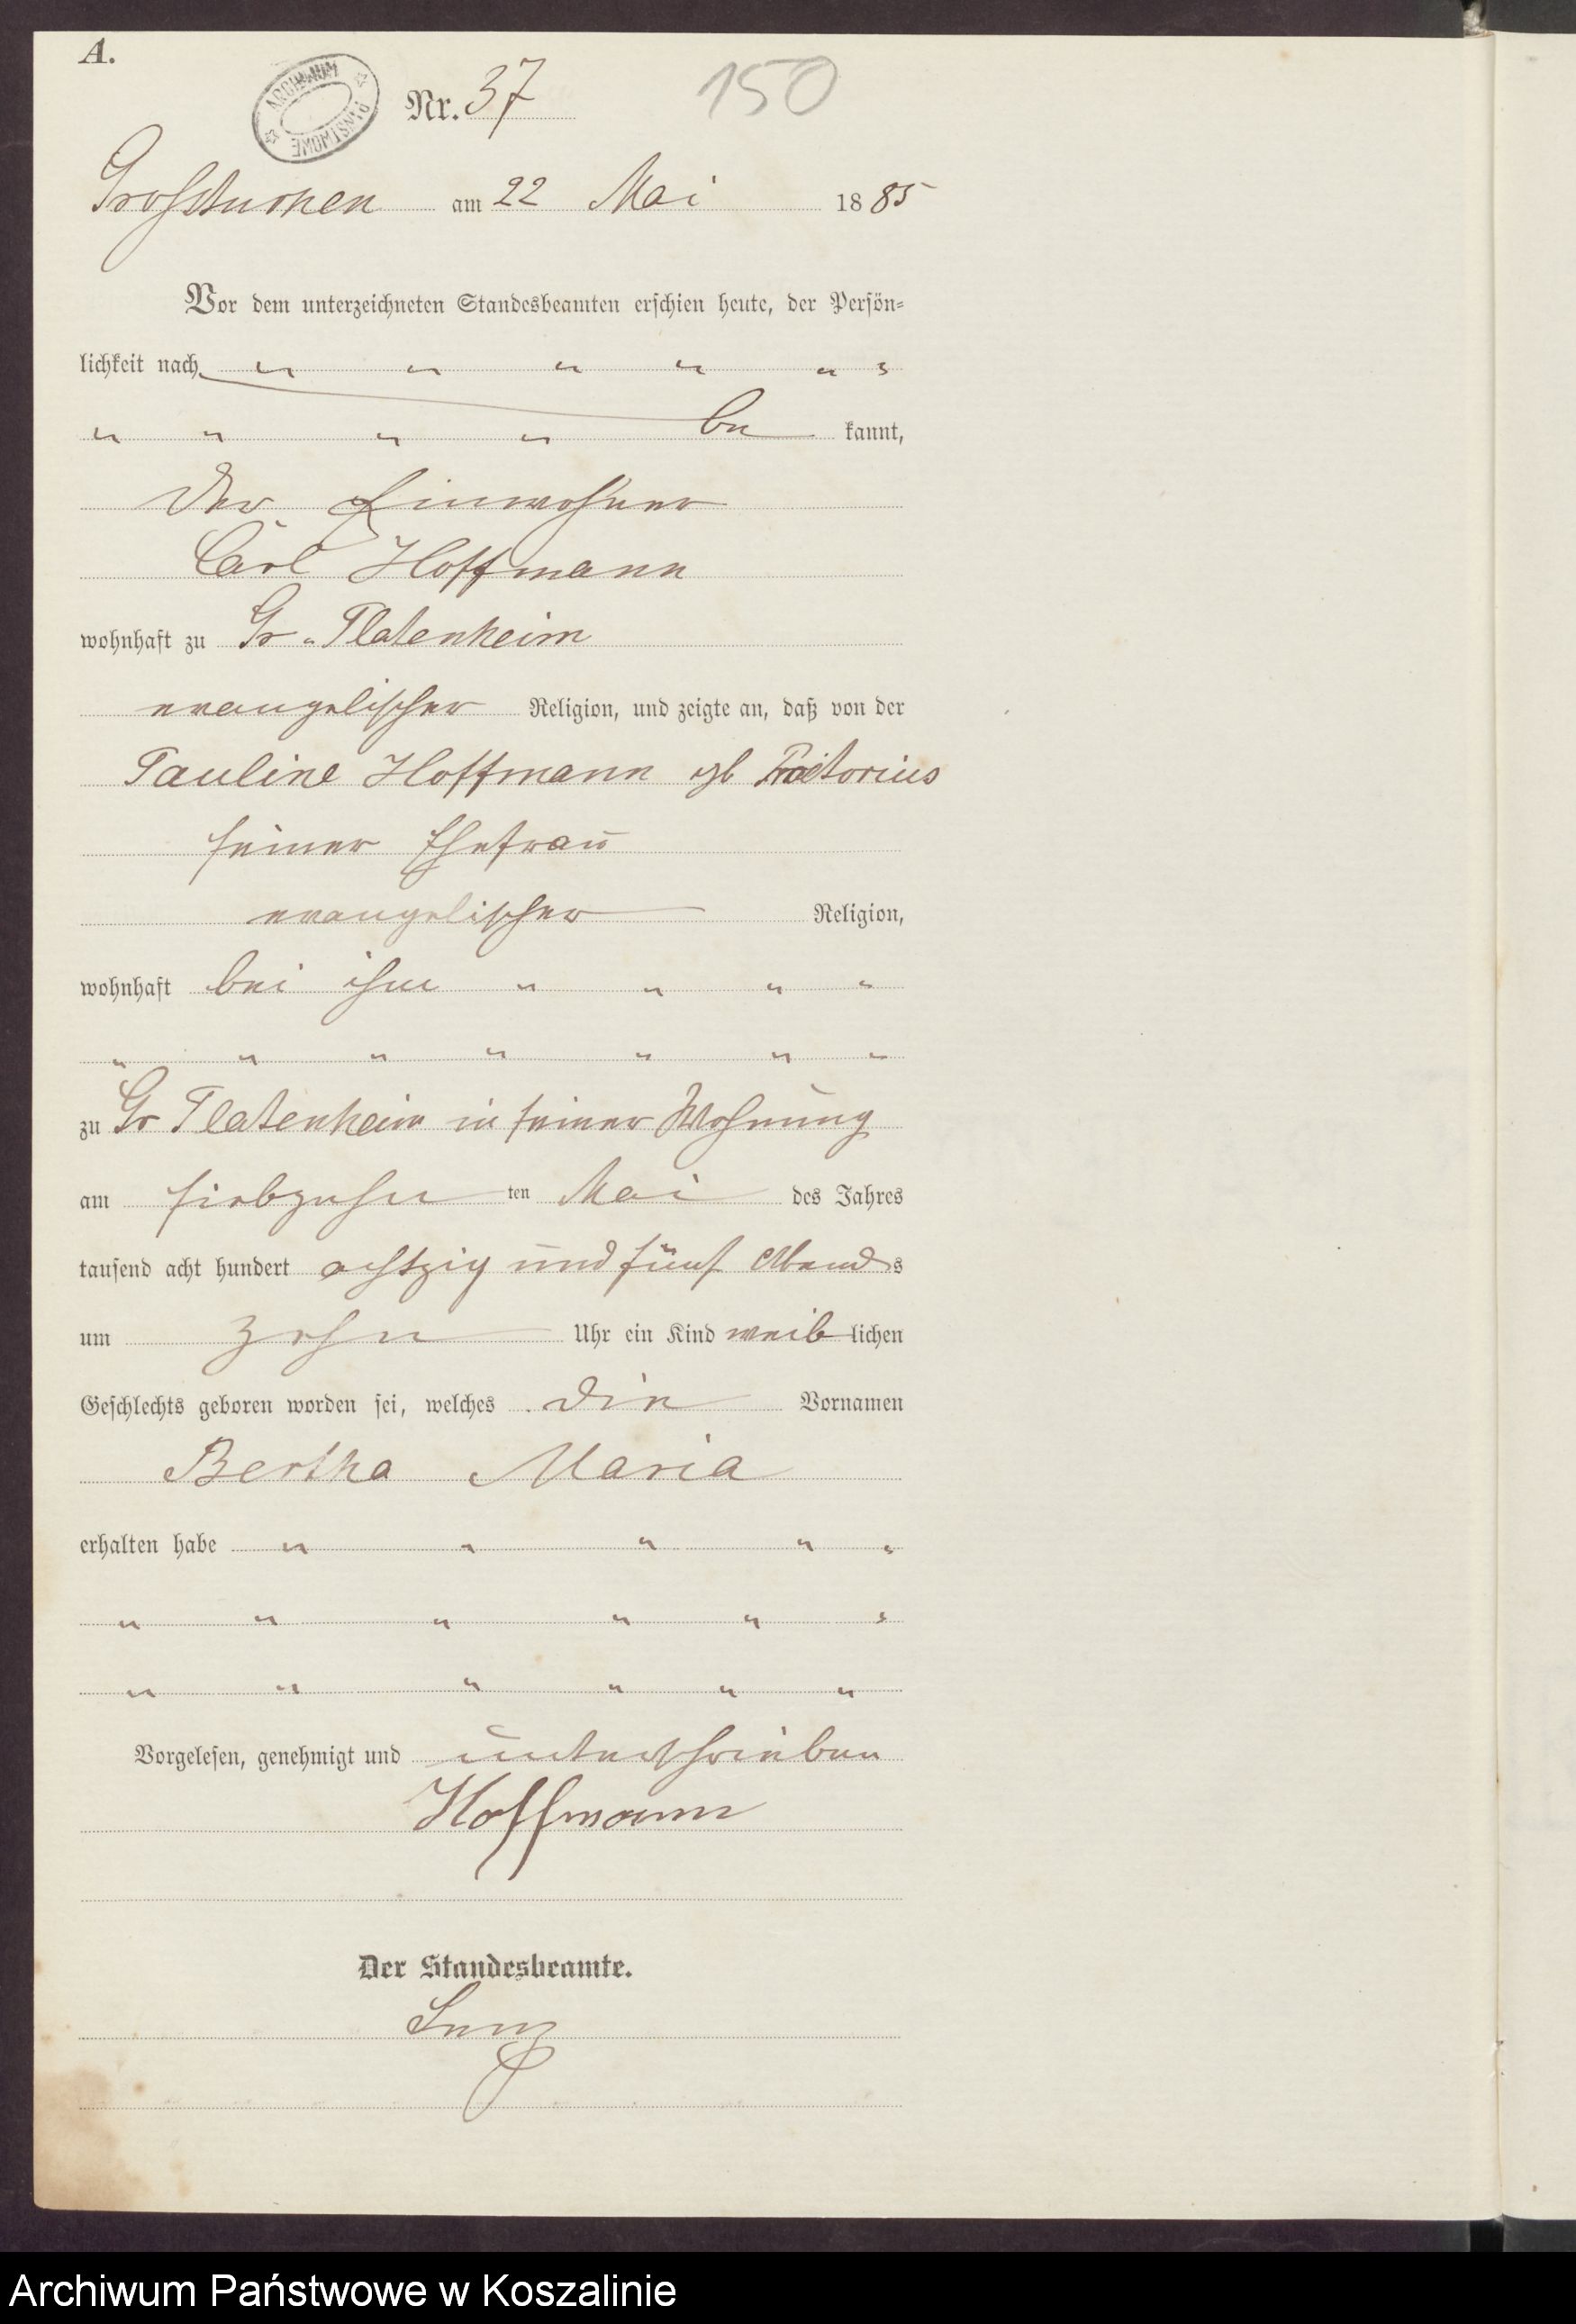 A.
ARCHIWUM PAŃSTWOWE
Nr. 37
150
Großtuchen am 22 Mai 1885
Vor dem unterzeichneten Standesbeamten erschien heute, der Persön-
lichkeit nach " " " " " "
" " " " be kannt,
der Einwohner
Carl Hoffmann
wohnhaft zu Gr. Platenheim
evangelischer Religion, und zeigte an, daß von der
Pauline Hoffmann gb Praetorius
seiner Ehefrau
evangelischer Religion,
wohnhaft bei ihm " " " "
" " " " " " "
zu Gr Platenheim in seiner Wohnung
am siebzehn ten Mai des Jahres
tausend acht hundert achtzig und fünf Abends
um zehn Uhr ein Kind weib lichen
Geschlechts geboren worden sei, welches die Vornamen
Bertha Maria
erhalten habe " " " " "
" " " " " "
" " " " " "
Vorgelesen, genehmigt und unterschrieben
Hoffmann
Der Standesbeamte.
Archiwum Państwowe w Koszalinie